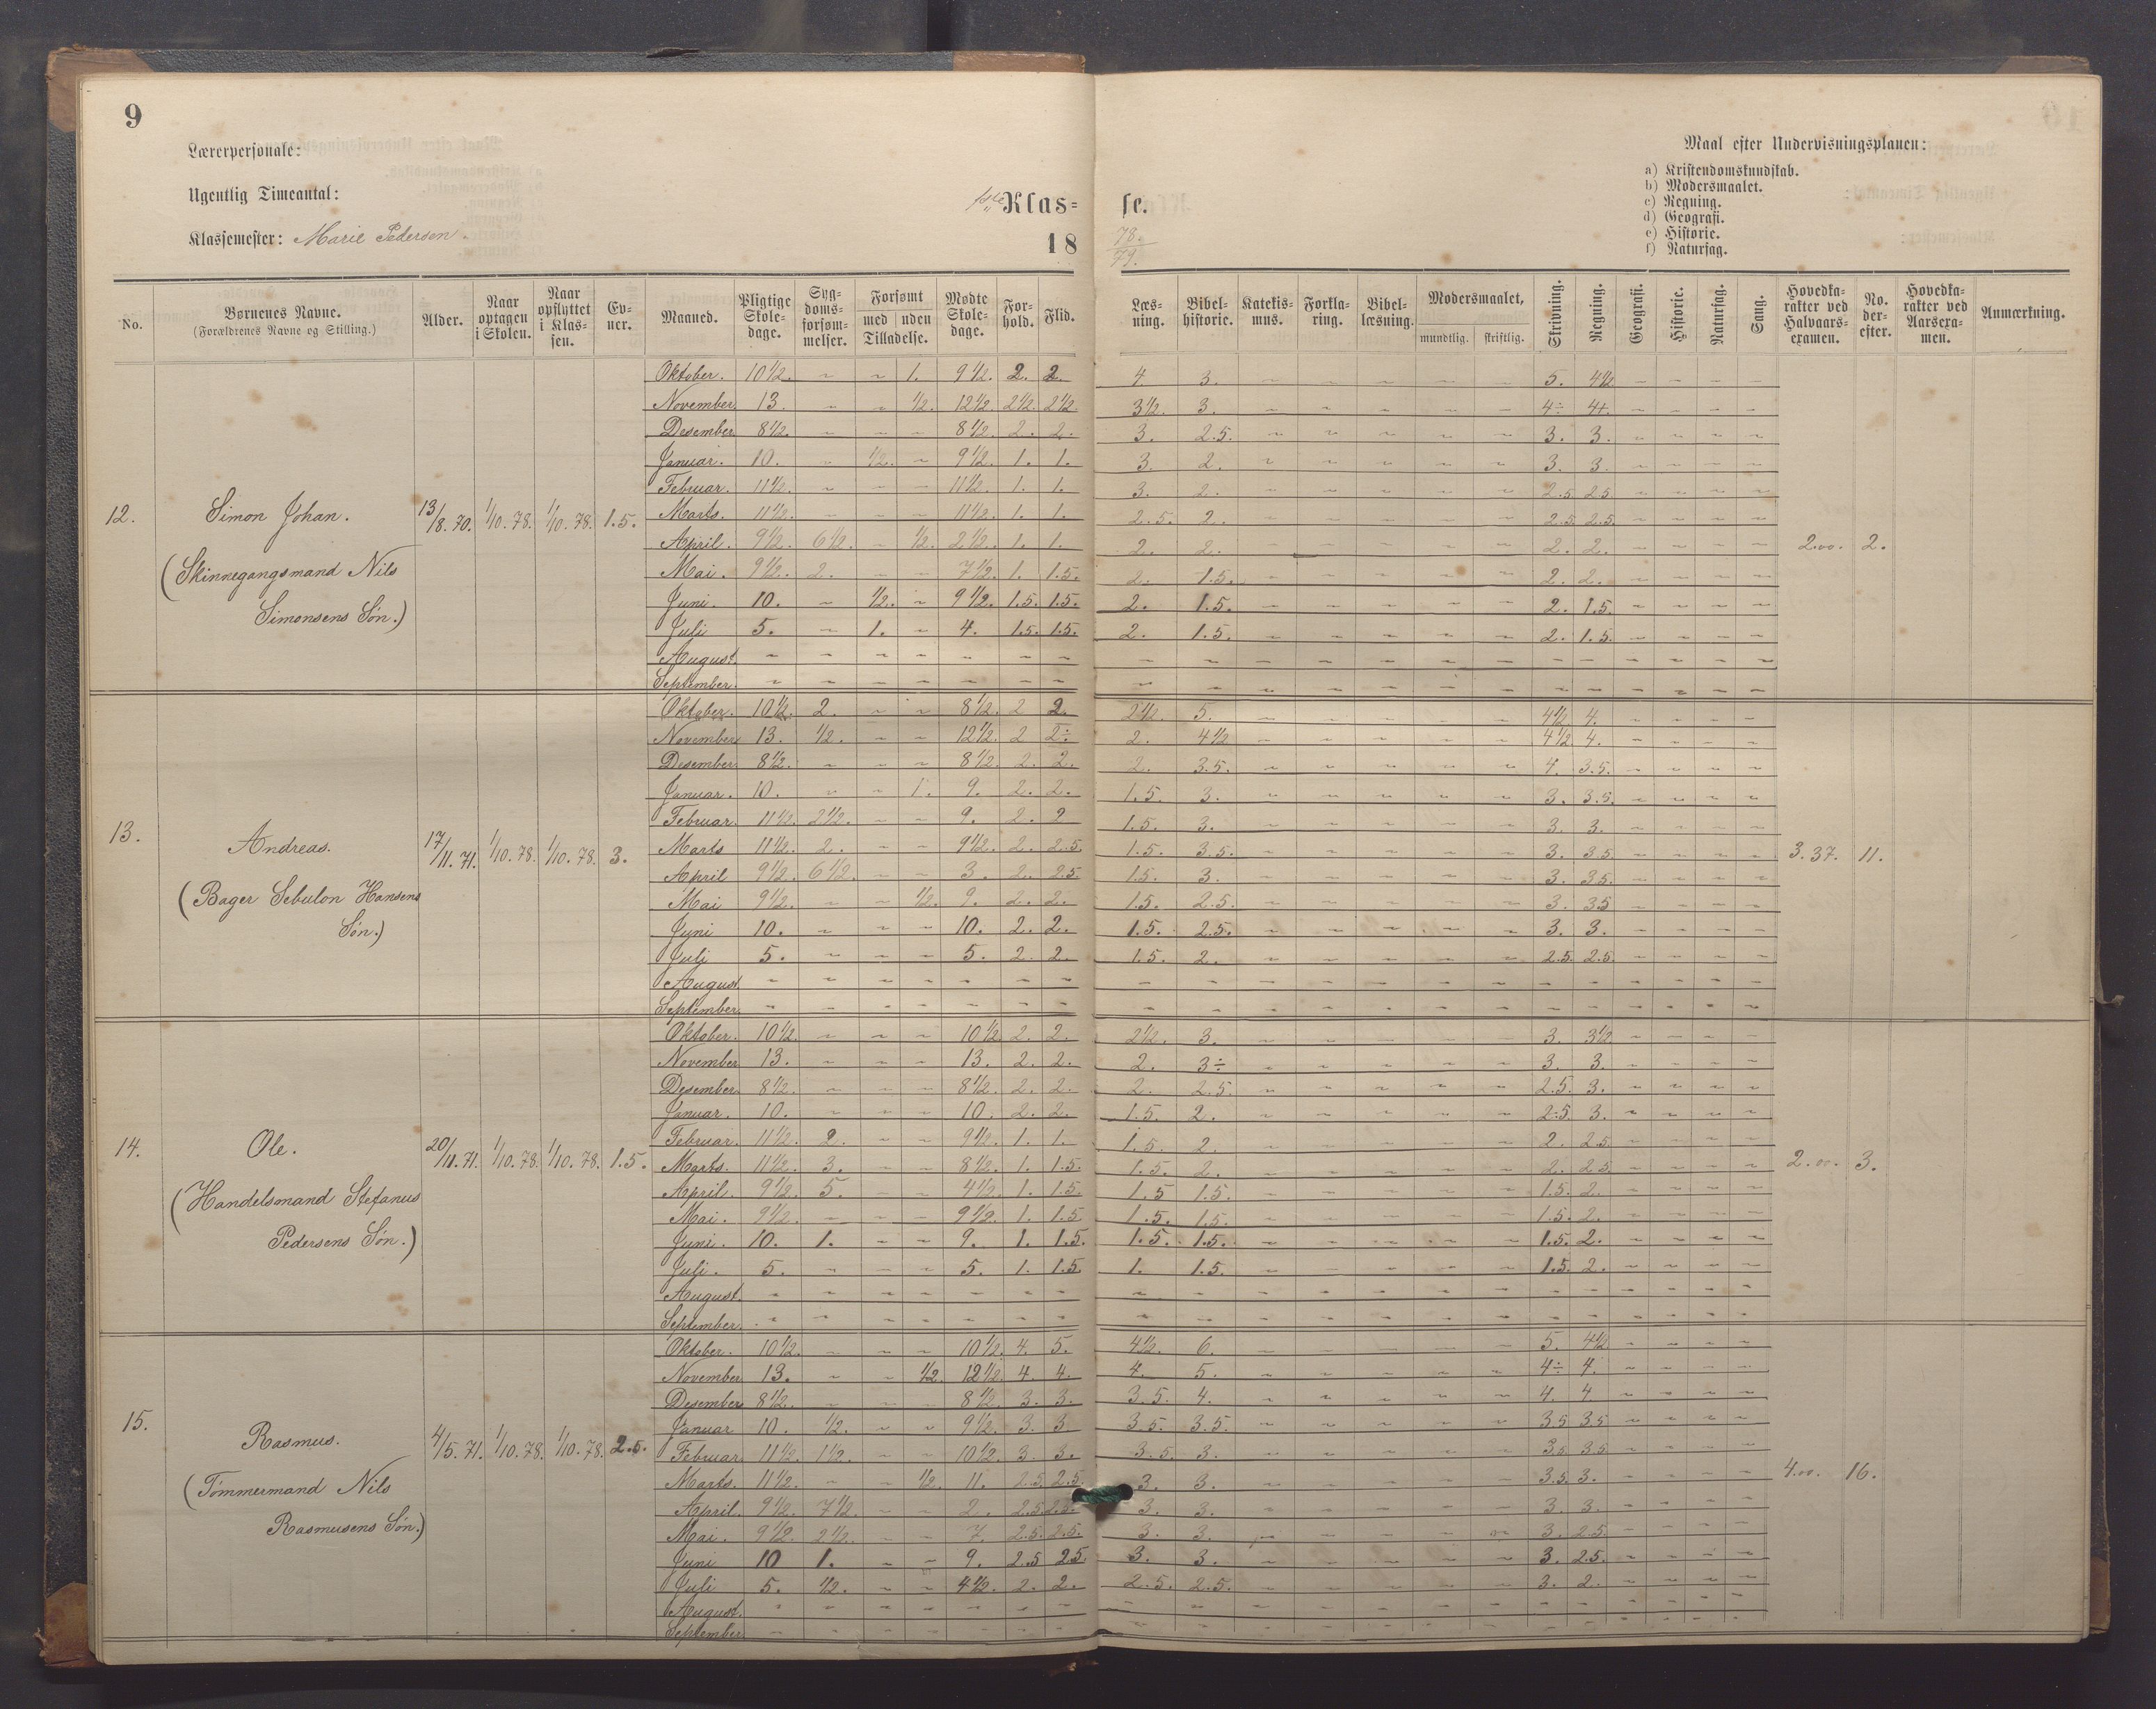 9
Lærerpersonale:
Ugentlig Timeantal:
Klassemester: Marie Pedersen.
1ste Klas= se.
18 78/79.
Maal efter Undervisningsplanen:
a) Kristendomskundskab.
b) Modersmaalet.
c) Regning.
d) Geografi.
e) Historie.
f) Naturfag.
No. | Børnenes Navne. (Forældrenes Navne og Stilling.) | Alder. | Naar optagen i Skolen. | Naar opflyttet i Klas-sen. | Ev-ner. | Maaned. | Pligtige Skole-dage. | Syg-doms-forsøm-melser. | Forsømt med / uden Tilladelse. | Mødte Skole-dage. | For-hold. | Flid. | Læs-ning. | Bibel-historie. | Katekis-mus. | Forkla-ring. | Bibel-læsning. | Modersmaalet, mundtlig. skriftlig. | Skrivning. | Regning. | Geografi. | Historie. | Naturfag. | Sang. | Hovedka-rakter ved Halvaars-examen. | No. der-efter. | Hovedka-rakter ved Aarsexa-men. | Anmærkning.
12. Simon Johan. 13/8. 70. 1/10. 78. 1/10. 78. 1.5. 2.00. 2.
(Skinnegangsmand Nils
Simonsens Søn.)
Oktober. 10 1/2. ~ ~ 1. 9 1/2. 2. 2. 4. 3. ~ ~ ~ ~ ~ 5. 4 1/2 ~ ~ ~ ~
November. 13. ~ ~ 1/2. 12 1/2. 2 1/2. 2 1/2. 3 1/2. 3. ~ ~ ~ ~ ~ 4÷ 4+. ~ ~ ~ ~
Desember. 8 1/2. ~ ~ ~ 8 1/2. 2. 2. 3. 2.5. ~ ~ ~ ~ ~ 3. 3. ~ ~ ~ ~
Januar. 10. ~ 1/2. ~ 9 1/2. 1. 1. 3. 2. ~ ~ ~ ~ ~ 3. 3. ~ ~ ~ ~
Februar. 11 1/2. ~ ~ ~ 11 1/2. 1. 1. 3. 2. ~ ~ ~ ~ ~ 2.5. 2.5. ~ ~ ~ ~
Marts. 11 1/2. ~ ~ ~ 11 1/2. 1. 1. 2.5. 2. ~ ~ ~ ~ ~ 2.5. 2.5. ~ ~ ~ ~
April. 9 1/2. 6 1/2. ~ 1/2. 2 1/2. 1. 1. 2. 2. ~ ~ ~ ~ ~ 2. 2. ~ ~ ~ ~
Mai. 9 1/2. 2. ~ ~ 7 1/2. 1. 1.5. 2. 1.5. ~ ~ ~ ~ ~ 2. 2. ~ ~ ~ ~
Juni. 10. ~ 1/2. ~ 9 1/2. 1.5. 1.5. 2. 1.5. ~ ~ ~ ~ ~ 2. 1.5. ~ ~ ~ ~
Juli 5. ~ 1. ~ 4. 1.5. 1.5. 2. 1.5. ~ ~ ~ ~ ~ 2. 1.5. ~ ~ ~ ~
August. ~ ~ ~ ~ ~ ~ ~
September. ~ ~ ~ ~ ~ ~ ~
13. Andreas. 17/11. 71. 1/10. 78. 1/10. 78. 3. 3.37. 11.
(Bager Sebulon Hansens
Søn.)
Oktober. 10 1/2. 2. ~ ~ 8 1/2. 2 2. 2 1/2. 5. ~ ~ ~ ~ ~ 4 1/2 4. ~ ~ ~ ~
November 13. 1/2. ~ ~ 12 1/2. 2 2÷ 2. 4 1/2 ~ ~ ~ ~ ~ 4 1/2. 4. ~ ~ ~ ~
Desember 8 1/2. ~ ~ ~ 8 1/2. 2. 2. 2. 3.5. ~ ~ ~ ~ ~ 4. 3.5. ~ ~ ~ ~
Januar. 10. ~ ~ 1. 9. 2. 2. 1.5. 3. ~ ~ ~ ~ ~ 3. 3.5. ~ ~ ~ ~
Februar. 11 1/2. 2 1/2. ~ ~ 9. 2. 2 1.5. 3. ~ ~ ~ ~ ~ 3. 3. ~ ~ ~ ~
Marts 11 1/2. 2. ~ ~ 9 1/2. 2. 2.5. 1.5. 3.5. ~ ~ ~ ~ ~ 3. 3.5. ~ ~ ~ ~
April 9 1/2. 6 1/2. ~ ~ 3. 2. 2.5. 1.5. 3. ~ ~ ~ ~ ~ 3. 3.5. ~ ~ ~ ~
Mai 9 1/2. ~ ~ 1/2. 9. 2. 2. 1.5. 2.5. ~ ~ ~ ~ ~ 3. 3.5 ~ ~ ~ ~
Juni 10. ~ ~ ~ 10. 2. 2. 1.5. 2.5. ~ ~ ~ ~ ~ 3. 3. ~ ~ ~ ~
Juli 5. ~ ~ ~ 5. 2. 2. 1.5. 2. ~ ~ ~ ~ ~ 2.5. 2.5. ~ ~ ~ ~
August. ~ ~ ~ ~ ~ ~ ~
September. ~ ~ ~ ~ ~ ~ ~
14. Ole. 20/11. 71. 1/10. 78. 1/10. 78. 1.5. 2.00. 3.
(Handelsmand Stefanus
Pedersens Søn.)
Oktober. 10 1/2. ~ ~ ~ 10 1/2. 2. 2. 2 1/2. 3. ~ ~ ~ ~ ~ 3. 3 1/2 ~ ~ ~ ~
November 13. ~ ~ ~ 13. 2. 2. 2. 3÷ ~ ~ ~ ~ ~ 3. 3. ~ ~ ~ ~
Desember 8 1/2. ~ ~ ~ 8 1/2. 2. 2. 2. 2.5. ~ ~ ~ ~ ~ 2.5. 3. ~ ~ ~ ~
Januar. 10. ~ ~ ~ 10. 2. 2. 1.5. 2. ~ ~ ~ ~ ~ 2.5. 3. ~ ~ ~ ~
Februar. 11 1/2. 2. ~ ~ 9 1/2. 1. 1. 1.5. 2. ~ ~ ~ ~ ~ 2. 2.5. ~ ~ ~ ~
Marts. 11 1/2. 3. ~ ~ 8 1/2. 1. 1.5. 1.5. 2. ~ ~ ~ ~ ~ 2. 2.5. ~ ~ ~ ~
April. 9 1/2. 5. ~ ~ 4 1/2. 1. 1.5. 1.5 1.5. ~ ~ ~ ~ ~ 1.5. 2. ~ ~ ~ ~
Mai. 9 1/2. ~ ~ ~ 9 1/2. 1. 1.5 1.5. 1.5. ~ ~ ~ ~ ~ 1.5. 2. ~ ~ ~ ~
Juni. 10. 1. ~ ~ 9. 1. 1.5. 1.5. 1.5. ~ ~ ~ ~ ~ 1.5. 2. ~ ~ ~ ~
Juli. 5. ~ ~ ~ 5. 1. 1.5. 1. 1.5. ~ ~ ~ ~ ~ 1.5. 2. ~ ~ ~ ~
August. ~ ~ ~ ~ ~ ~ ~
September. ~ ~ ~ ~ ~ ~ ~
15. Rasmus. 4/5. 71. 1/10. 78. 1/10. 78. 2.5. 4.00. 16.
(Tømmermand Nils
Rasmusens Søn.)
Oktober. 10 1/2. ~ ~ ~ 10 1/2. 4. 5. 4 1/2. 6. ~ ~ ~ ~ ~ 5. 4 1/2 ~ ~ ~ ~
November 13. ~ ~ 1/2. 12 1/2. 4. 4. 4. 5. ~ ~ ~ ~ ~ 4÷ 4. ~ ~ ~ ~
Desember 8 1/2. ~ ~ ~ 8 1/2. 3. 3. 3.5. 4. ~ ~ ~ ~ ~ 4. 4 ~ ~ ~ ~
Januar 10. 1/2. ~ ~ 9 1/2. 3. 3. 3.5. 3.5. ~ ~ ~ ~ ~ 3.5 3.5 ~ ~ ~ ~
Februar 11 1/2. 1 1/2. ~ ~ 10 1/2. 3. 3. 3.5. 3. ~ ~ ~ ~ ~ 3.5 3.5 ~ ~ ~ ~
Marts. 11 1/2. ~ ~ 1/2. 11. 2.5. 2.5. 3. 3. ~ ~ ~ ~ ~ 3.5. 3. ~ ~ ~ ~
April. 9 1/2. 7 1/2. ~ ~ 2. 2.5. 2.5. 3. 3. ~ ~ ~ ~ ~ 3. 3. ~ ~ ~ ~
Mai. 9 1/2. 2 1/2. ~ ~ 7. 2.5. 2.5. 3. 3. ~ ~ ~ ~ ~ 3. 2.5. ~ ~ ~ ~
Juni 10 1. ~ ~ 9. 2.5 2.5. 3. 3. ~ ~ ~ ~ ~ 3. 2.5. ~ ~ ~ ~
Juli 5. 1/2. ~ ~ 4 1/2. 2. 2. 2.5. 2.5. ~ ~ ~ ~ ~ 3. 2. ~ ~ ~ ~
August. ~ ~ ~ ~ ~ ~ ~
September. ~ ~ ~ ~ ~ ~ ~